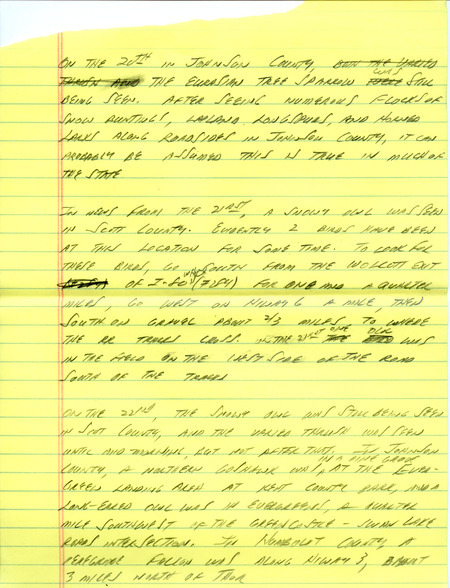 ON THE 20TH IN JOHNSON COUNTY, BOTH THE VARIED
THRUSH AND THE EURASIAN TREE SPARROW WAS STILL
BEING SEEN. AFTER SEEING NUMEROUS FLOCKS OF
SNOW BUNTINGS, LAPLAND LONGSPURS, AND HORNED
LARKS ALONG ROADSIDES IN JOHNSON COUNTY, IT CAN
PROBABLY BE ASSUMED THIS IS TRUE IN MUCH OF
THE STATE
IN NEWS FROM THE 21ST, A SNOWY OWL WAS SEEN
IN SCOTT COUNTY. EVIDENTLY 2 BIRDS HAVE BEEN
AT THIS LOCATION FOR SOME TIME. TO LOOK FOR
THESE BIRDS, GO SOUTH FROM THE WOLCOTT EXIT
OF I-80 (#284) FOR ONE AND A QUARTER
MILES, GO WEST ON HIWAY 6 A MILE, THEN
SOUTH ON GRAVEL ABOUT 2/3 MILES, TO WHERE
THE RR TRACKS CROSS. IN THE 21ST ONE OWL WAS
IN THE FIELD ON THE WEST SIDE OF THE ROAD
SOUTH OF THE TRACKS
ON THE 22ND, THE SNOWY OWL WAS STILL BEING SEEN
IN SCOTT COUNTY, AND THE VARIED THRUSH WAS SEEN
UNTIL MID MORNING, BUT NOT AFTER THAT. IN JOHNSON
COUNTY, A NORTHERN GOSHAWK WAS IN A PINE GROVE AT THE EVER-
GREEN LANDING AREA AT KENT COUNTY PARK, AND A
LONG-EARED OWL WAS IN EVERGREENS, A QUARTER
MILE SOUTHWEST OF THE GREENCASTLE - SWAN LAKE
ROADS INTERSECTION. IN HUMBOLDT COUNTY, A
PEREGRINE FALCON WAS ALONG HIWAY 3, ABOUT
3 MILES NORTH OF THOR